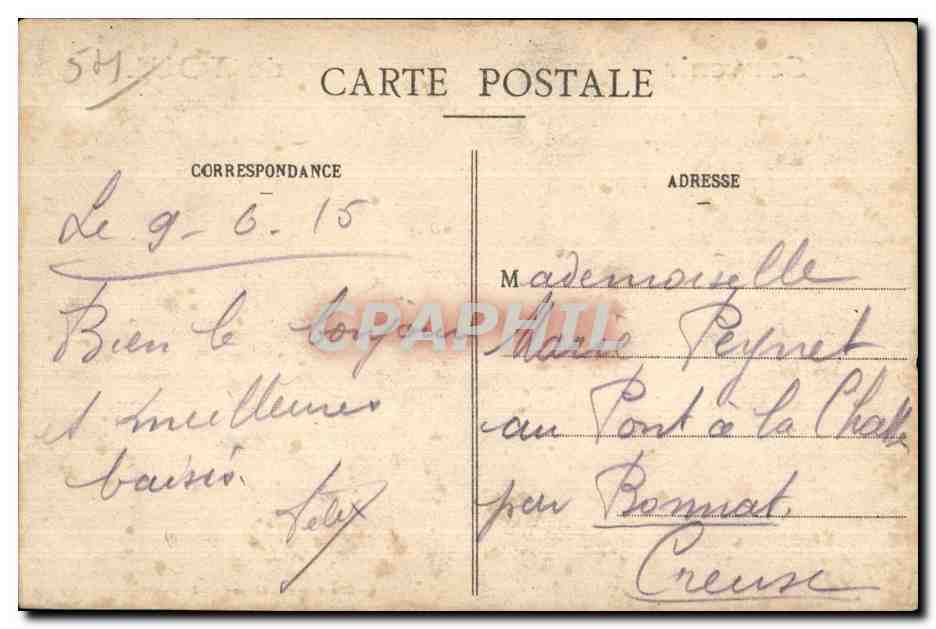 571
CARTE POSTALE
CORRESPONDANCE
Le 9-6.15
Bien le bonjour
et meilleures
baisés.
Félix
ADRESSE
Mademoiselle
Marie Peynet
au Pont à la Chatte
par Bonnat,
Creuse
GRAPHIL